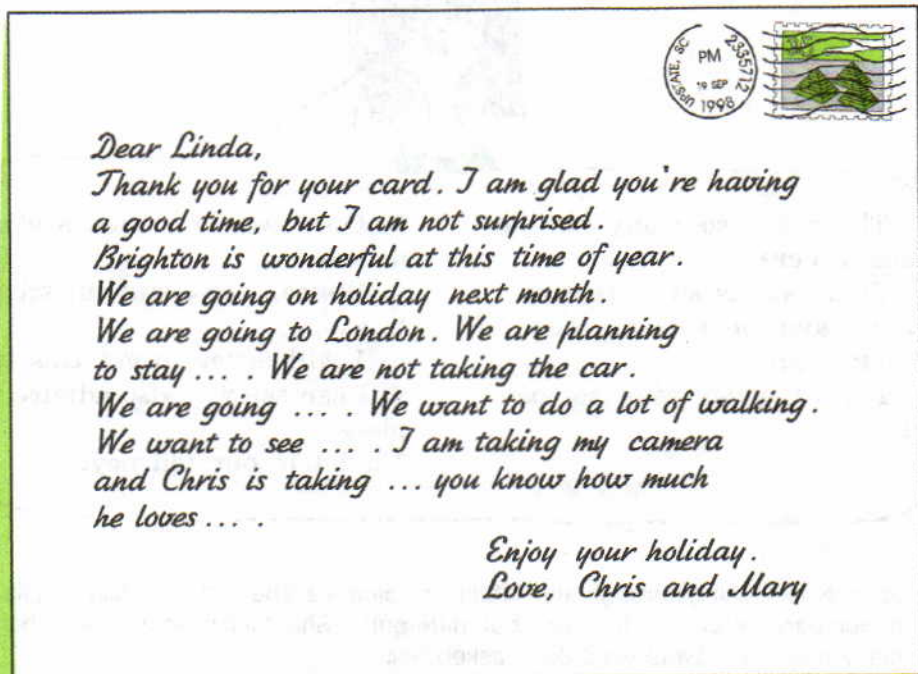 UPSTATE, SC
PM
2335712
19 SEP
1998
Dear Linda,
Thank you for your card. I am glad you're having
a good time, but I am not surprised.
Brighton is wonderful at this time of year.
We are going on holiday next month.
We are going to London. We are planning
to stay ... . We are not taking the car.
We are going ... . We want to do a lot of walking.
We want to see ... . I am taking my camera
and Chris is taking ... you know how much
he loves ... .
Enjoy your holiday.
Love, Chris and Mary